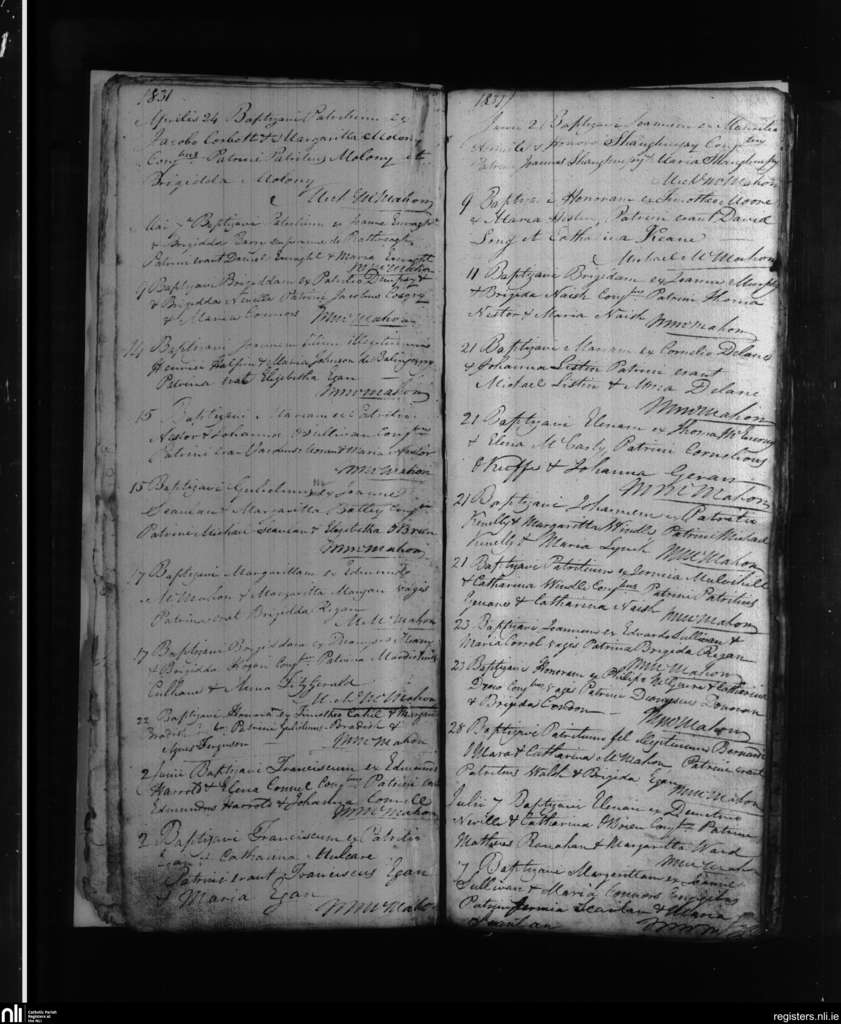 1831
Aprilis 24 Baptizavi Patritium ex
Jacobo Corbett & Margaritta Molony
Congbus Patrini Patritius Molony et
Brigidda Molony
Mich McMahon
Mai 7 Baptizavi Patritium ex Joanne Enraght
& Brigidda
Patrini erant Daniel Enraght & Maria Enraght
MMcMahon
9 Baptizavi Brigiddam ex Patritio Dempsey
& Brigidda Neville Patrini Jacobus Cosgry
& Maria Connors MMcMahon
14 Baptizavi Joannem filium illegitimum
Henrici Halpin & Maria Johnson de Balingarry
Patrina erat Elizabetha Egan
MMcMahon
15 Baptizavi Mariam ex Patritio
Nestor & Johanna O Sullivan Congbus
Patrini erant & Maria Nestor
MMcMahon
15 Baptizavi Gulielmum ex Joanne
Scanlan & Margaritta Batley Congbus
Patrini Michael Scanlan & Elizabetha O Brien
MMcMahon
17 Baptizavi Margarittam ex Edmundo
McMahon & Margaritta Mangan vagis
Patrina erat Brigidda Regan
McMahon
17 Baptizavi Brigiddam ex Dionysio Kleary
& Brigidda Hogan Congbus Patrini
Culhane & Anna FitzGerald
Mich McMahon
22 Baptizavi Honoram ex Timotheo Cahil & Margaritta
Bradish Patrini Gulielmus Bradish &
Agnes Ferguson MMcMahon
2 Junii Baptizavi Franciscum ex Edmundo
Harrots & Elena Connel Congbus Patrini
Edmundus Harrots & Johanna Connell
MMcMahon
2 Baptizavi Franciscum ex Patritio
Egan & Catharina Mulcare
Patrini erant Franciscus Egan
& Maria Egan
MMcMahon
1831
Junii 2 Baptizavi Joannem ex Mauritio
Shaughnessy Congbus
Patrini Joannes Shaughnessy & Maria Shaughnessy
Mich McMahon
9 Baptizavi Honoram ex Timotheo Moore
& Maria Patrini erant David
Long et Catharina Keane
Michael McMahon
11 Baptizavi Brigidam ex Joanne Murphy
& Brigida Naish Congbus Patrini Thomas
Nestor & Maria Naish
MMcMahon
21 Baptizavi Mariam ex Cornelio Delane
& Johanna Listin Patrini erant
Michael Listin & Maria Delane
MMcMahon
21 Baptizavi Elenam ex Thoma
& Elena McCarty Patrini Cornelious
O Keeffe & Johanna Geran
MMcMahon
21 Baptizavi Johannem ex Patritio
Kinelly & Margaritta Windle Patrini Michael
Kinelly & Maria Lynch MMcMahon
21 Baptizavi Patritium ex Jermia Mulvihill
& Catharina Windle Congbus Patrini Patritius
& Catharina Naish MMcMahon
23 Baptizavi Joannem ex Edvardo Sullivan &
Maria Corrol vages Patrina Brigida Regan
MMcMahon
23 Baptizavi Honoram ex Philipo McGuire & Catharina
Drew Congbus vages Patrini Dionysius Donovan
& Brigida Condon MMcMahon
28 Baptizavi Patritium fil illegitimum Bernardi
OMara & Catharina McMahon Patrini erant
Patritius Walsh & Brigida Egan
MMcMahon
Julii 7 Baptizavi Elenam ex Demetrio
Neville & Catharina O Brien Congbus Patrini
Matheus Ranahan & Margaritta Ward
MMcMahon
7 Baptizavi Margarittam ex Joanne
Sullivan & Maria Connors
Patrini Jermia Scanlan & Maria
Scanlan
nli
Catholic Parish
Registers at
the NLI
registers.nli.ie